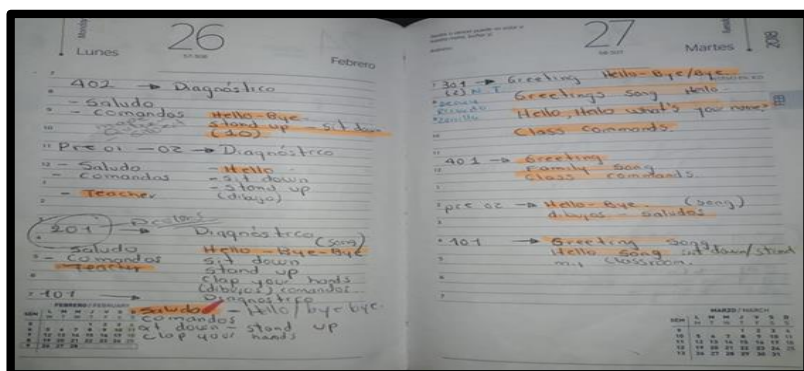 Lunes
26
Febrero
402 → Diagnóstico
- Saludo
- Comandos Hello - Bye
stand up - sit down
(10)
Pre 01 - 02 → Diagnóstico
- Saludo - Hello
- Comandos - sit down
- stand up
- Teacher (dibujo)
201 → Diagnóstico
(song)
- Saludo Hello - Bye - Bye
- Comandos sit down
- Teacher stand up
Clap your hands
(dibujos) comandos
101 → Diagnostico
- Saludo - Hello / bye bye
comandos
sit down - stand up
Clap your hands
FEBRERO / FEBRUARY
27
Martes
2018
301 → Greeting Hello - Bye / Bye
Greetings song Hello
Hello, Hello what's your name?
Class commands
401 → Greeting
Family song
Class commands
pre 02 → Hello - Bye (song)
dibujos - saludos
101 → Greeting song
Hello song sit down / stand
classroom.
MARZO / MARCH